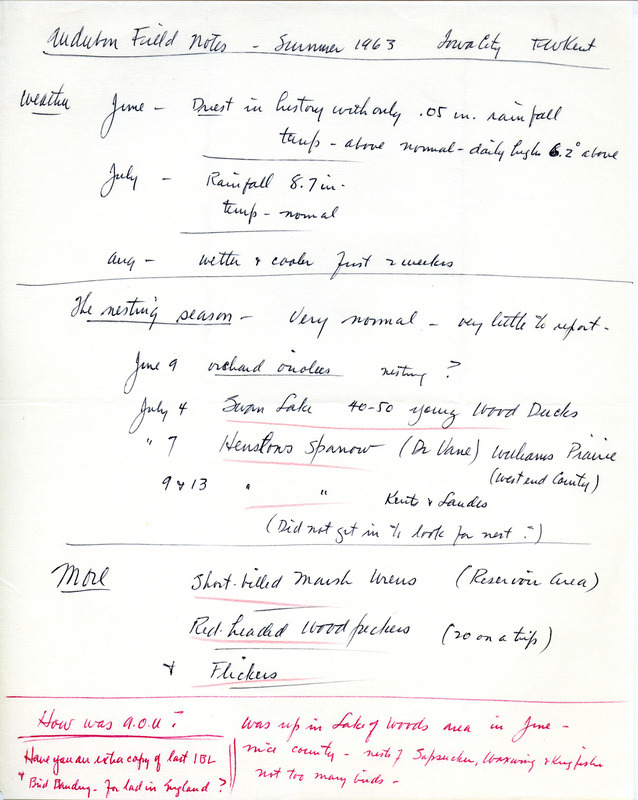 Audubon Field Notes - Summer 1963 Iowa City FWKent
Weather June - Driest in history with only .05 in. rainfall
temp - above normal - daily highs 6.2° above
July - Rainfall 8.7 in.
temp - normal
Aug - wetter & cooler first 2 weeks
The nesting season - Very normal - very little to report -
June 9 orchard orioles nesting?
July 4 Swan Lake 40-50 young Wood Ducks
" 7 Henslows Sparrow (Dr Vane) Williams Prairie
(West end County)
9 & 13 " " Kent & Landes
(Did not get in to look for nest -)
More Short-billed Marsh Wrens (Reservoir Area)
Red-headed Woodpeckers (20 on a trip)
& Flickers
How was A.O.U.?
Have you an extra copy of last IBL
& Bird Banding - for lad in England?
Was up in Lake of Woods area in June -
nice country - nests of Sapsucker, Waxwing & Kingfisher
not too many birds -